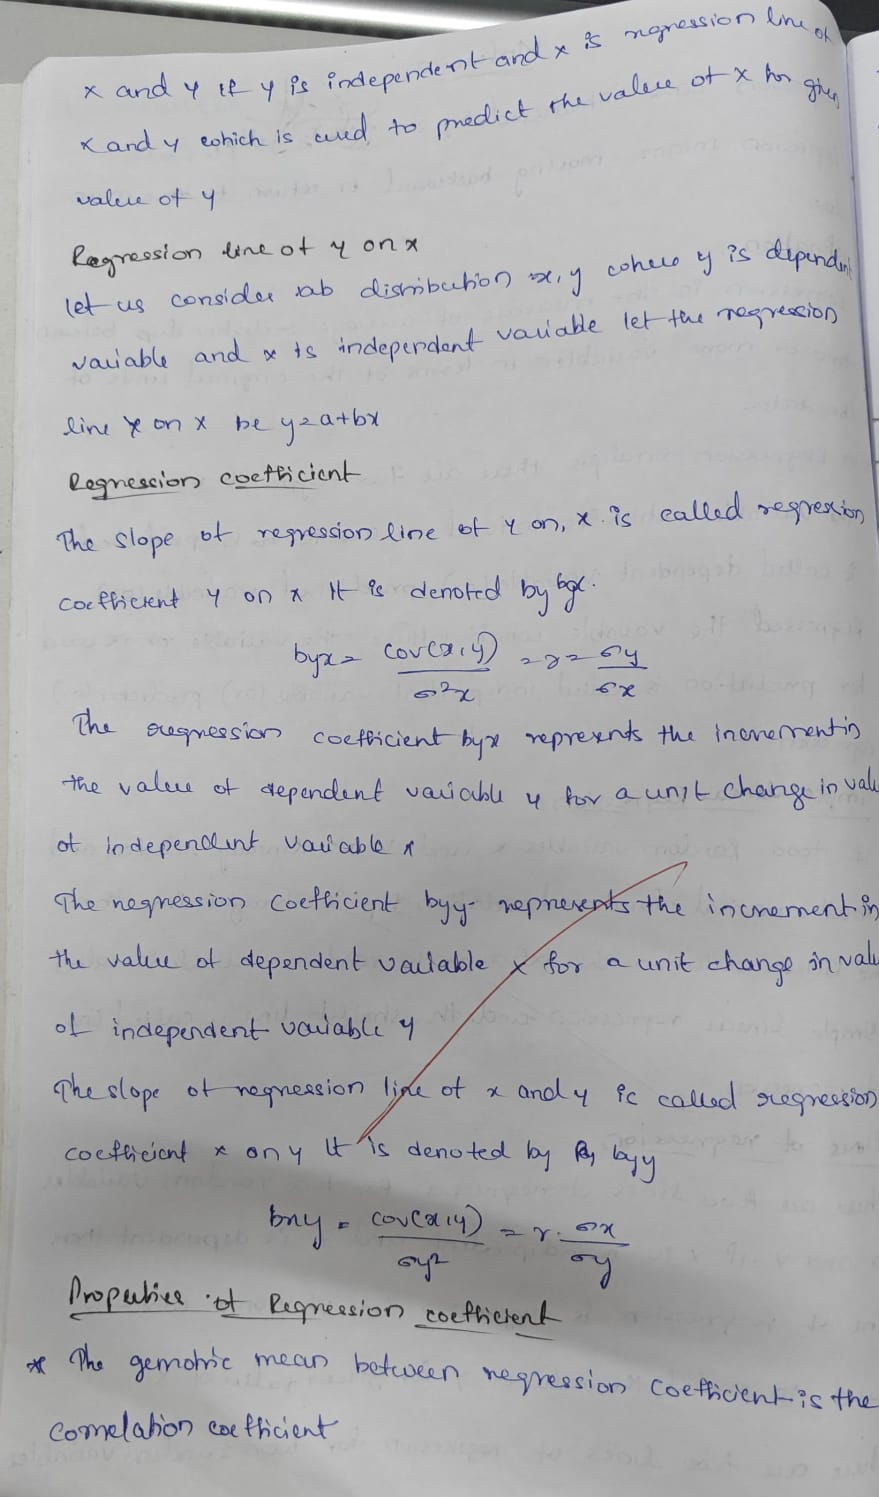 x and y if y is independent and x is regression line of
x and y which is used to predict the value of x for given
value of y
Regression line of y on x
let us consider ab distribution x, y where y is dependent
variable and x is independent variable let the regression
line y on x be y=a+bx
Regression coefficient
The slope of regression line of y on, x is called regression
coefficient y on x It is denoted by byx.
byx = cov(x,y)/σ²x = r = σy/σx
The regression coefficient byx represents the increment in
the value of dependent variable y for a unit change in valu
of independent variable x
The regression coefficient byy represents the increment in
the value of dependent variable x for a unit change in valu
of independent variable y
The slope of regression line of x and y is called regression
coefficient x on y It is denoted by byy
bxy = cov(x,y)/σy² = r. σx/σy
Properties of Regression coefficient
* The gemotric mean between regression coefficient is the
Correlation coefficient